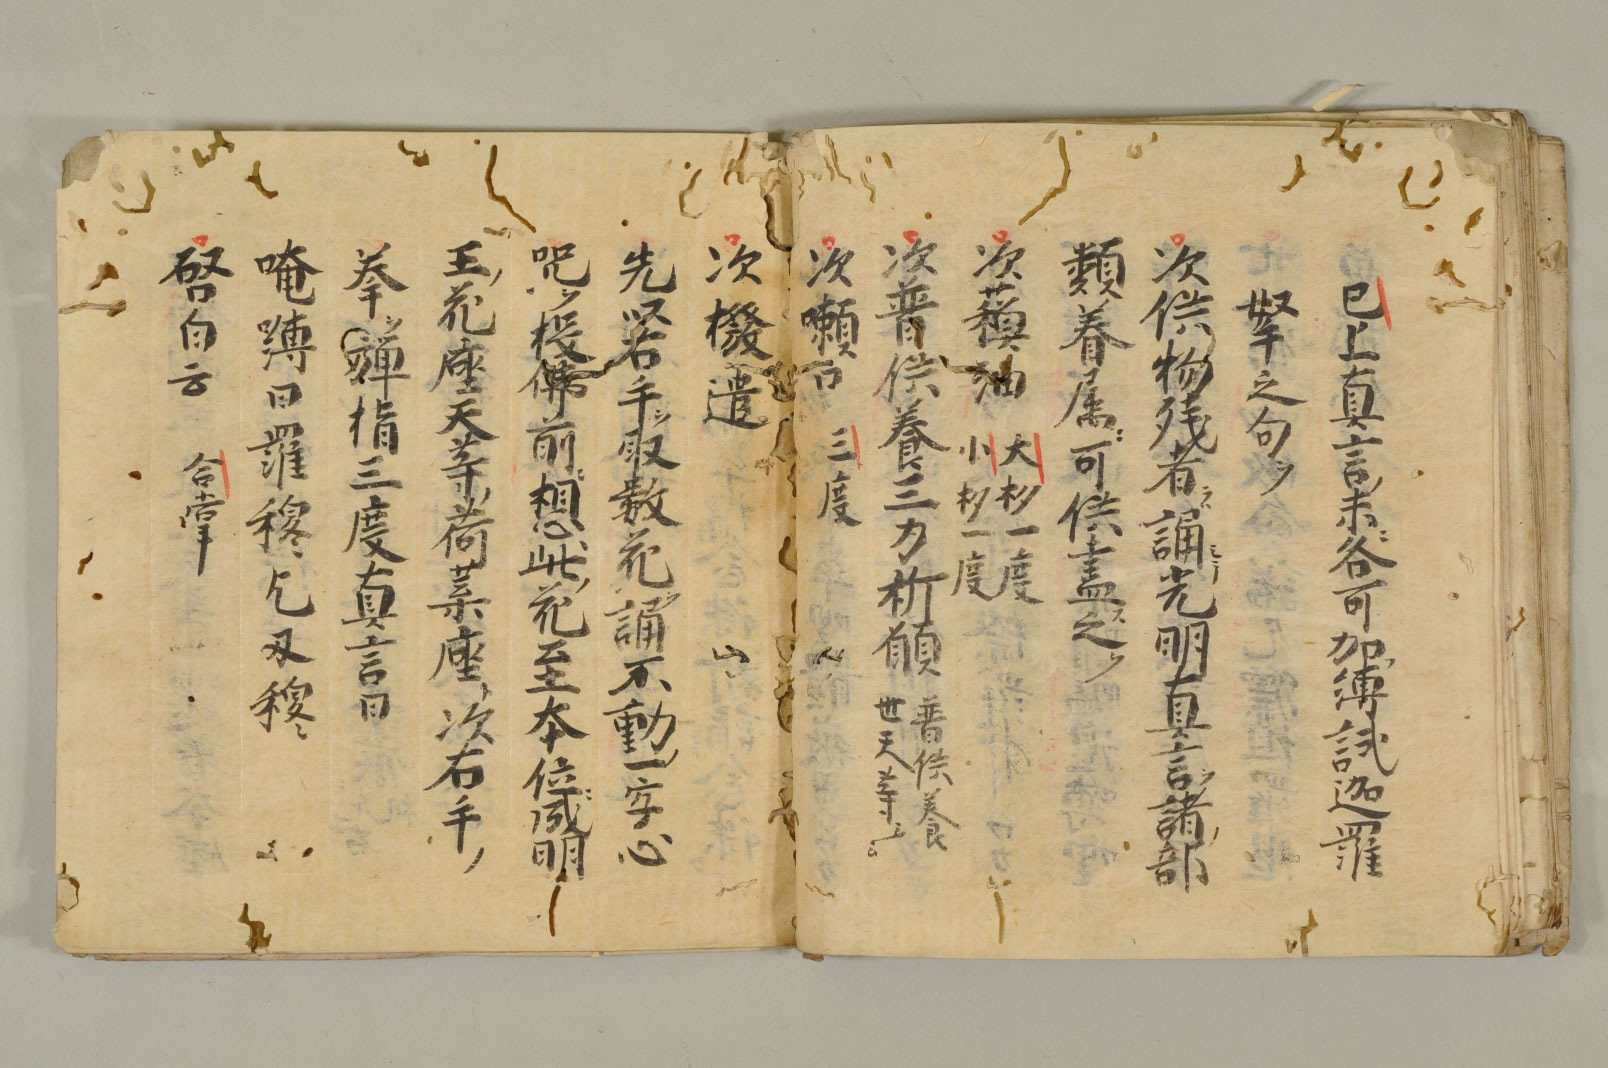 已上真言末各可加縛試迦羅
拏之句
次供物残者誦光明真言諸部
類眷属可供盡之
次蘓油 大杓一度
小杓一度
次普供養三力祈願 普供養
世天等
次嚫口 三度
次撥遣
先以右手取数花誦不動一字心
呪投佛前想此花至本位成明
王花座天等荷葉座次右手
拳弾指三度真言曰
唵嚩日羅穆乞叉穆
啓白云 合掌